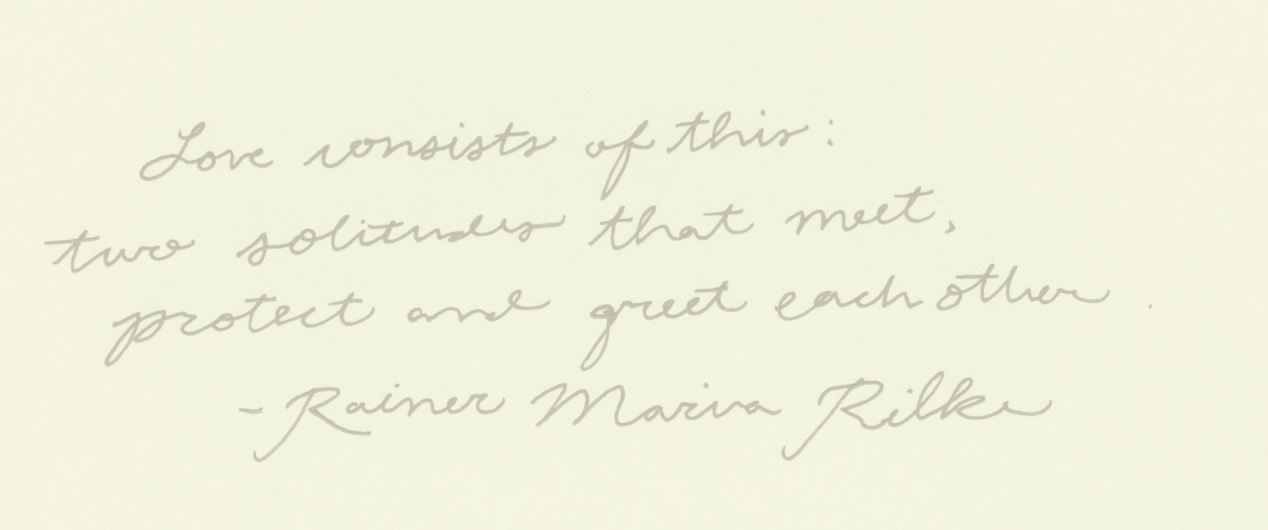 Love consists of this:
two solitudes that meet,
protect and greet each other.
- Rainer Maria Rilke